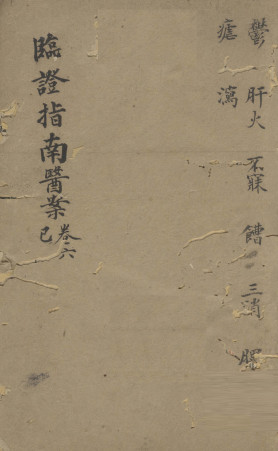 鬱 肝火 不寐 三消
瘧 瀉
臨證指南醫案 卷六
己